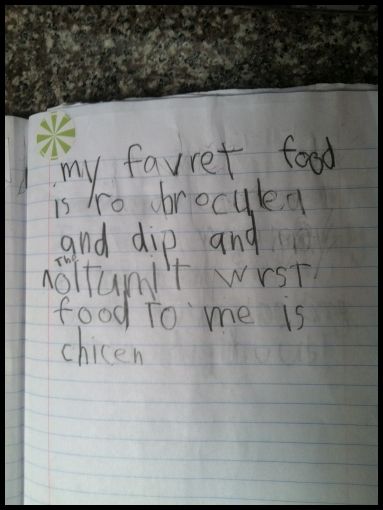 my favret food
is ro broculea
and dip and
The
oltumit wrst
food to me is
chicen